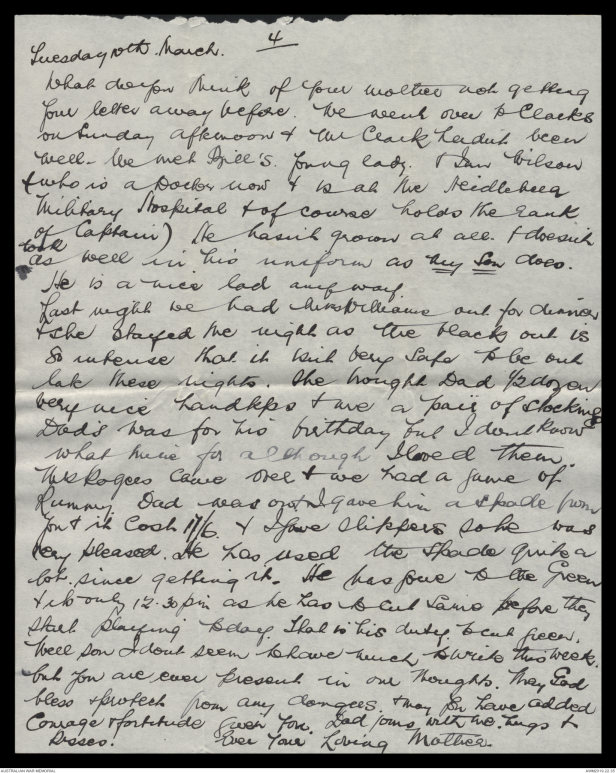 4
Tuesday 10th. March.
What do you think of your mother not getting
your letter away before. We went over to Clarks
on Sunday afternoon & Mr Clark hadn't been
well. We met Bill's. young lady. & Ian Wilson
(who is a Doctor now & is at the Heidleberg
Military Hospital & of course holds the rank
of Captain) He hasn't grown at all. & doesn't
look
as well in his uniform as my son does.
He is a nice lad anyway.
Last night we had Mrs Williams out for dinner
& she stayed the night as the black out is
so intense that it isn't very safe to be out
late these nights. She brought Dad 1/2 dozen
very nice handkfs & me a pair of stockings
Dad's was for his birthday but I don't know
what mine for although I loved them.
Mrs Rogers came over & we had a game of
Rummy. Dad was & I gave him a spade from
you & it cost 17/6. & I gave slippers so he was
very pleased. He has used the spade quite a
lot. since getting it. He has gone to the Green
& it's only 12.30 pm as he has to cut same before they
start playing today. That is his duty. to cut green.
Well son I dont seem to have much to write this week.
but you are ever present in our thoughts. May God
bless & protect from any dangers. & may you have added
courage & fortitude given you. Dad joins with me. hugs &
kisses. Ever your Loving Mother.
AUSTRALIAN WAR MEMORIAL